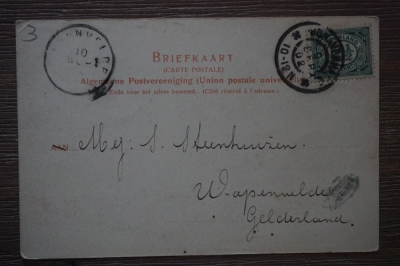 3
BRIEFKAART
(CARTE POSTALE)
Algemeene Postvereeniging (Union postale universelle)
Zijde voor het adres bestemd. (Côté réservé à l'adresse.)
AAN
Mej. S. Steenhuizen
Wapenvelde
Gelderland.